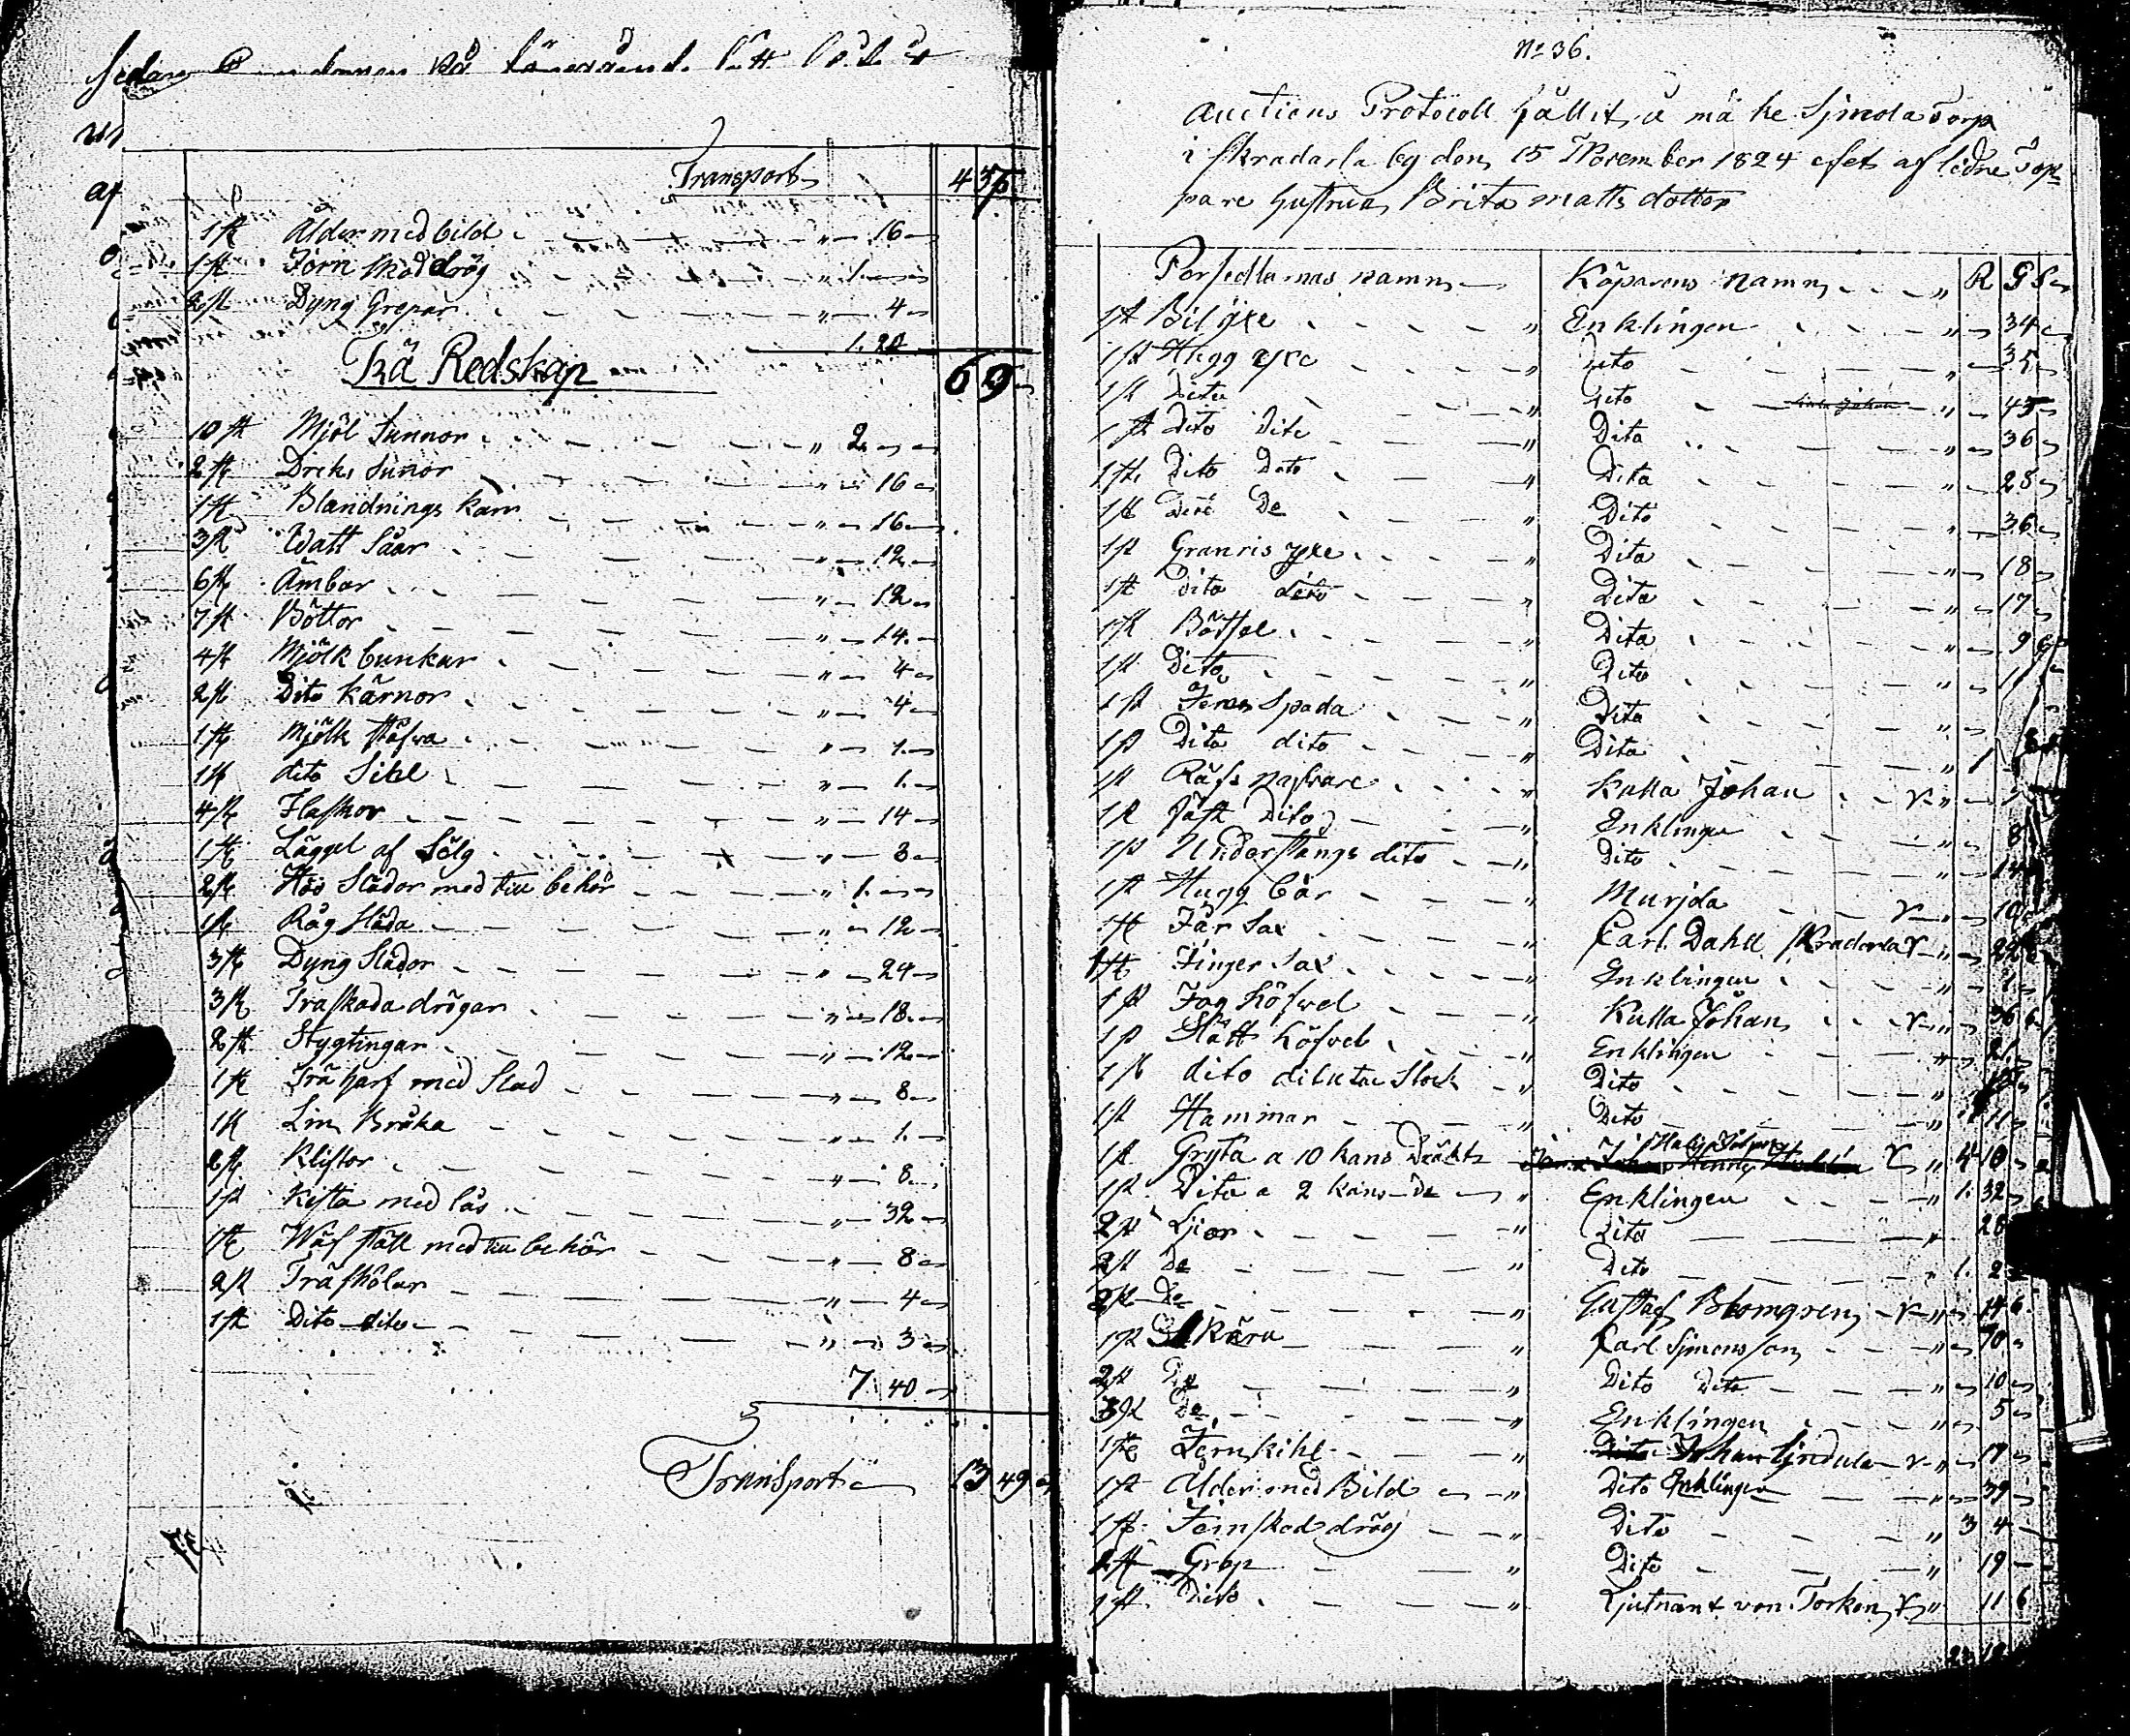 Transport 4 35
1 st Ålder med bild 16
1 st Jern skodd drög 1
2 st Dyng Grepar 4
1. 20
Trä Redskap 6 9
10 st Mjöl Tunnor 2
2 st Dricks Tunor 16
1 st Blandnings kar 16
3 st Watt Såar 12
6 st Ämbar 12
7 st Böttor 14
4 st Mjölk bunkar 4
2 st Dito Kärnor 4
1 st Mjölk stäfva 1
1 st dito Sihl 1
4 st Flaskor 14
1 st Läggel af Tälg 8
2 st Hös Slädor med till behör 1
1 st Råg Släda 12
3 st Dyng Slädor 24
3 st Träskoda drögar 18
2 st Stygtingar 12
1 st Trä harf med Slad 8
1 st Lin Bråka 1
2 st Klistor 8
1 st Kista med lås 32
1 st Wäf ställ med till behör 8
2 st Träskölar 4
1 st Dito dito 3
7 40
Transport 13 49
No 36.
Auctions Protocoll hållit å Sjmola Torp
i Skradarla by den 15 November 1824 efter aflidne Torpare Hustrun Brita Matts dotter
Persedlarnas namn Köparens Namn R S
1 st Bil yxe Enklingen 34
1 st Hugg yxe Dito 35
1 st Dito Dito 45
1 st Dito Dito Dito 36
1 st Dito Dito Dito 28
1 st Dito Do Dito 36
1 st Granris yxe Dito 18
1 st Dito dito Dito 17
1 st Böttsel Dito 9
1 st Dito Dito 11
1 st Jern Spada Dito
1 st Dito dito Dito 1
1 st Räfs nafvare Kulla Johan
1 st Fäst Dito Enklingen 8
1 st Understångs dito Dito 14
1 st Hugg bär Murjda 10
1 st Får Sax Carl Dahl Skradarla 22
1 st Finger Sax Enklingen 1
1 st Fog höfvel Kulla Johan 36 6
1 st Slätt höfvel Enklingen 21
1 st dito dito utan Stock Dito
1 st Hammar Dito 11
1 st Gryta a 10 kans Dräkt 4 10
1 st Dito a 2 kans do Enklingen 1. 32
2 st Liar Dito 28
2 st Do Dito 1. 2
2 st Do Gustaf Blomgren 14 6
1 st Skära Carl Sjmonsson 70
2 st Do Dito Dito 10
3 st Do Enklingen 5
1 st Jernkihl Johan Sjndula 17
1 st Ålder med Bild Dito Enklingen 39
1 st Jernskod drög Dito 3 4
2 st Grep Dito 19
1 st Dito Ljutnant von Torken 11 6